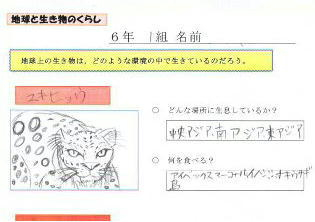 地球と生き物のくらし
6年 1組 名前
地球上の生き物は、どのような環境の中で生きているのだろう。
ユキヒョウ
○ どんな場所に生息しているか?
中央アジア、南アジア、東アジア
○ 何を食べる?
アイベックス マーコール
鳥